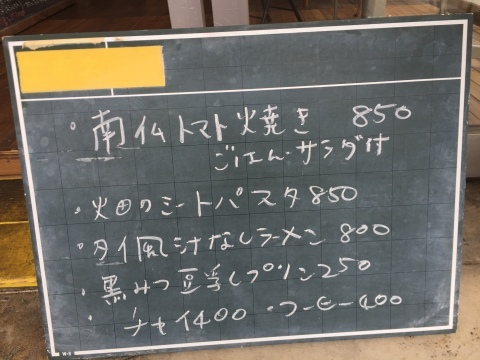 ・南仏トマト火焼き 850
ごはん・サラダ付
・畑のミートパスタ850
・タイ風汁なしラーメン 800
・黒みつ豆乳プリン250
・チャイ400 ・コーヒー400